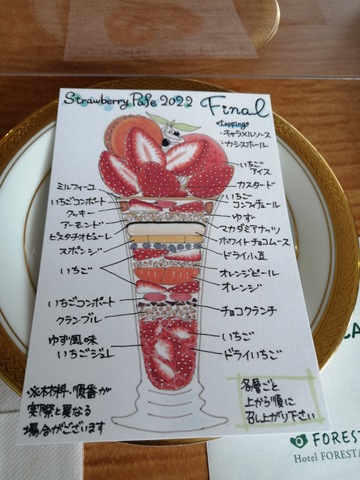 Strawberry Pafe 2022 Final
*topping*
・キャラメルソース
・カシスボール
いちご
アイス
カスタード
ミルフィーユ
いちごコンポート
クッキー
アーモンド
ピスタチオピューレ
スポンジ
いちご
いちごコンポート
クランブル
ゆず風味
いちごジュレ
いちご
コンフィチュール
ゆず
マカダミアナッツ
ホワイトチョコムース
ドライ小豆
オレンジピール
オレンジ
チョコクランチ
いちご
ドライいちご
※材料・順番が
実際と異なる
場合がございます
各層ごと
上から順に
召し上がり下さい
FOREST
Hotel FORESTA